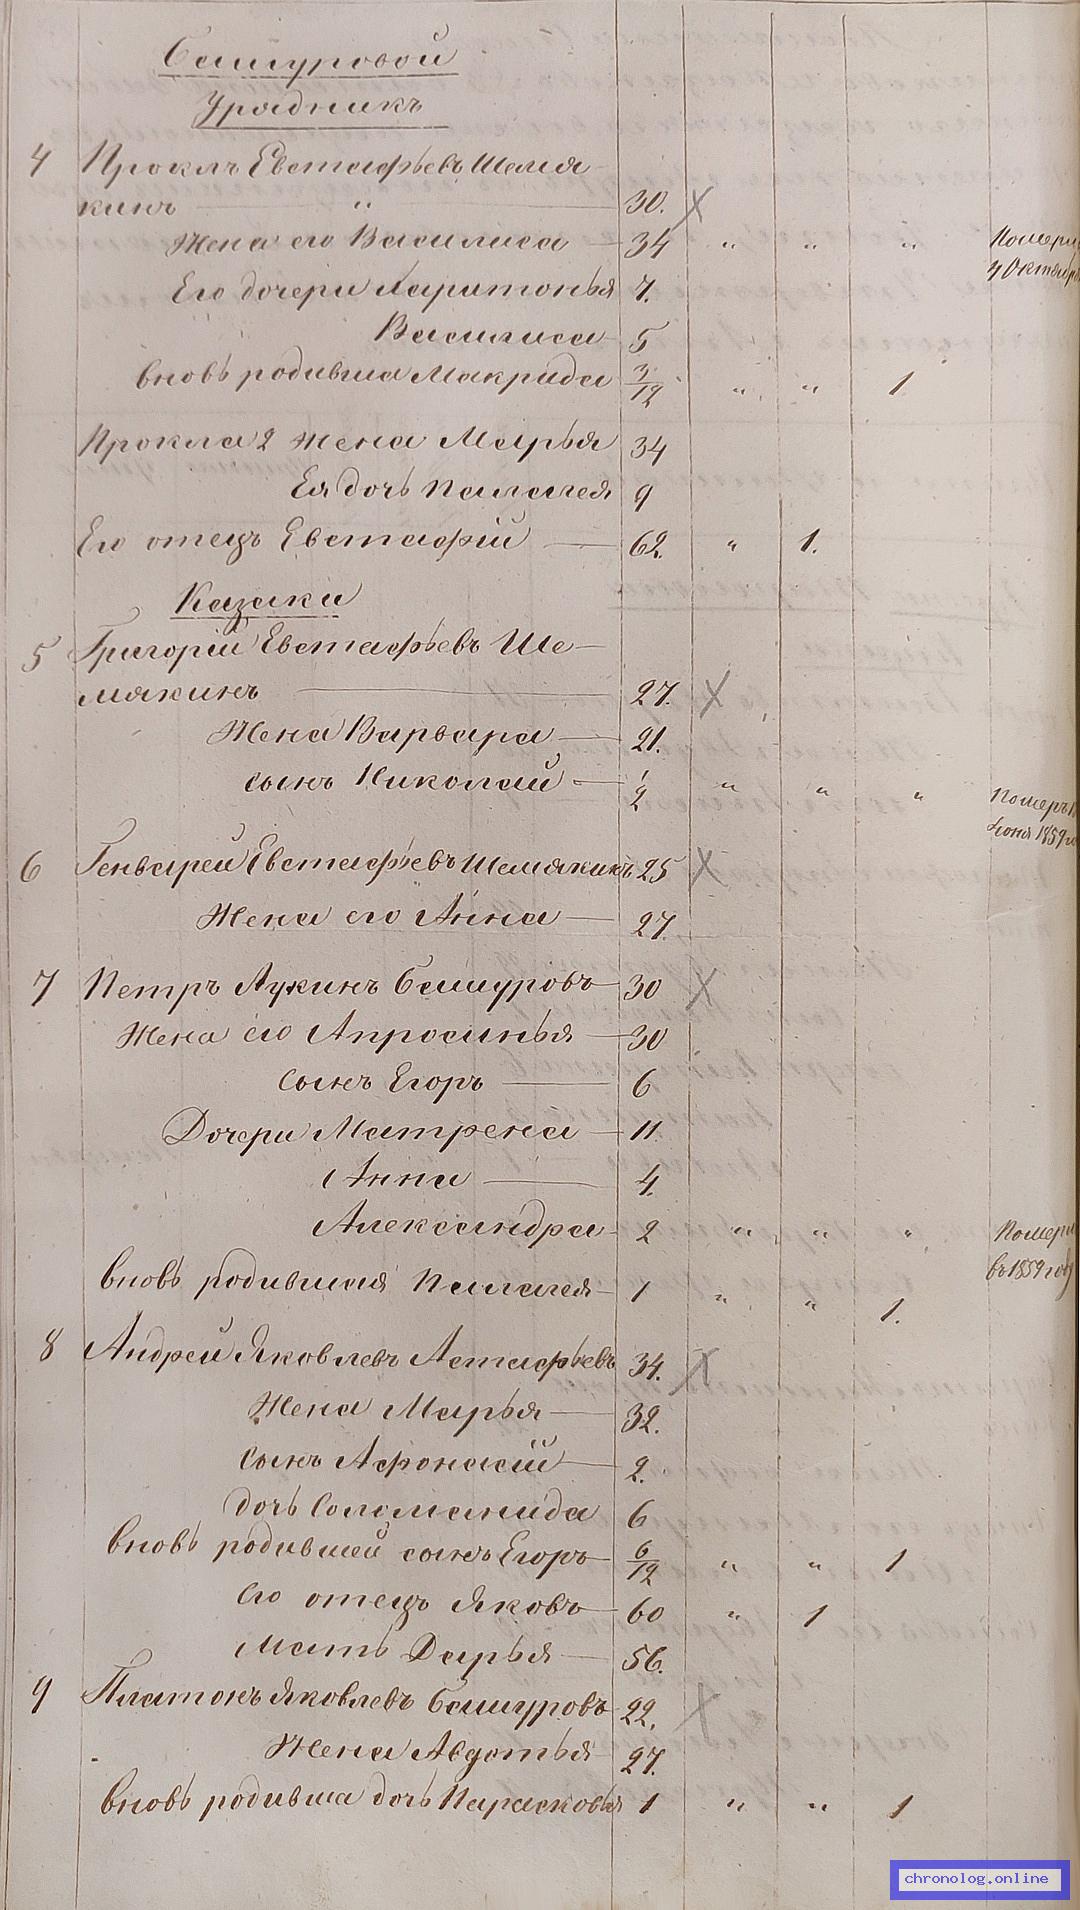 Башуровой
Урядникъ
4 Проклъ Евстафьевъ Шемя
кинъ " 30.
Жена его Василиса 34 " " " Померла
4 Октября
Его дочери Харитонья 7.
Василиса 5
вновь родивша Макрида 3/12 " " 1
Прокла 2 жена Марья 34
Ея дочь Палагея 9
Его отецъ Евстафій 62. " 1.
Казаки
5 Григорій Евстафьевъ Ше-
мякинъ 27.
Жена Варвара 21.
сынъ Николай 1/2 " " " Померъ
Іюня 1859
6 Генварей Евстафьевъ Шемякинъ 25
Жена его Анна 27.
7 Петръ Лукинъ Башуровъ 30
Жена его Апросинья 30
сынъ Егоръ 6
Дочери Матрена 11
Анна 4.
Александра 2 " " " Померла
въ 1859 году
вновь родившая Палагея 1 " " 1.
8 Андрей Яковлевъ Астафьевъ 34.
Жена Марья 32.
сынъ Афонасій 2.
дочь Соломанида 6
вновь родившей сынъ Егоръ 6/12 " " 1
Его отецъ Яковъ 60 " 1
Мать Дарья 56.
9 Платонъ Яковлевъ Башуровъ 22.
Жена Авдотья 27.
вновь родивша дочь Парасковья 1 " " 1
chronolog.online